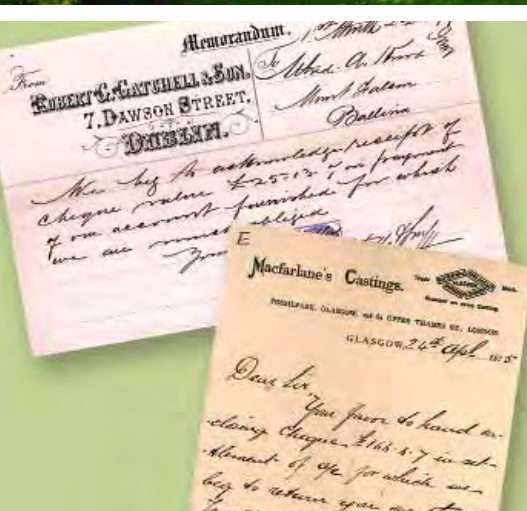 Memorandum.
From
ROBERT C. GATCHELL & SON.
7, DAWSON STREET,
DUBLIN.
To
Mount Falcon
Ballina
We beg to acknowledge receipt of
cheque value £25-13-1 in payment
of our account furnished for which
we are much obliged
E
Macfarlane's Castings.
Trade Mark.
POSSILPARK, GLASGOW, and 84 UPPER THAMES ST., LONDON
GLASGOW, 24th Apl 1875
Dear Sir,
Your favor to hand en-
closing Cheque £166.4.7 in set-
tlement of a/c for which we
beg to return you